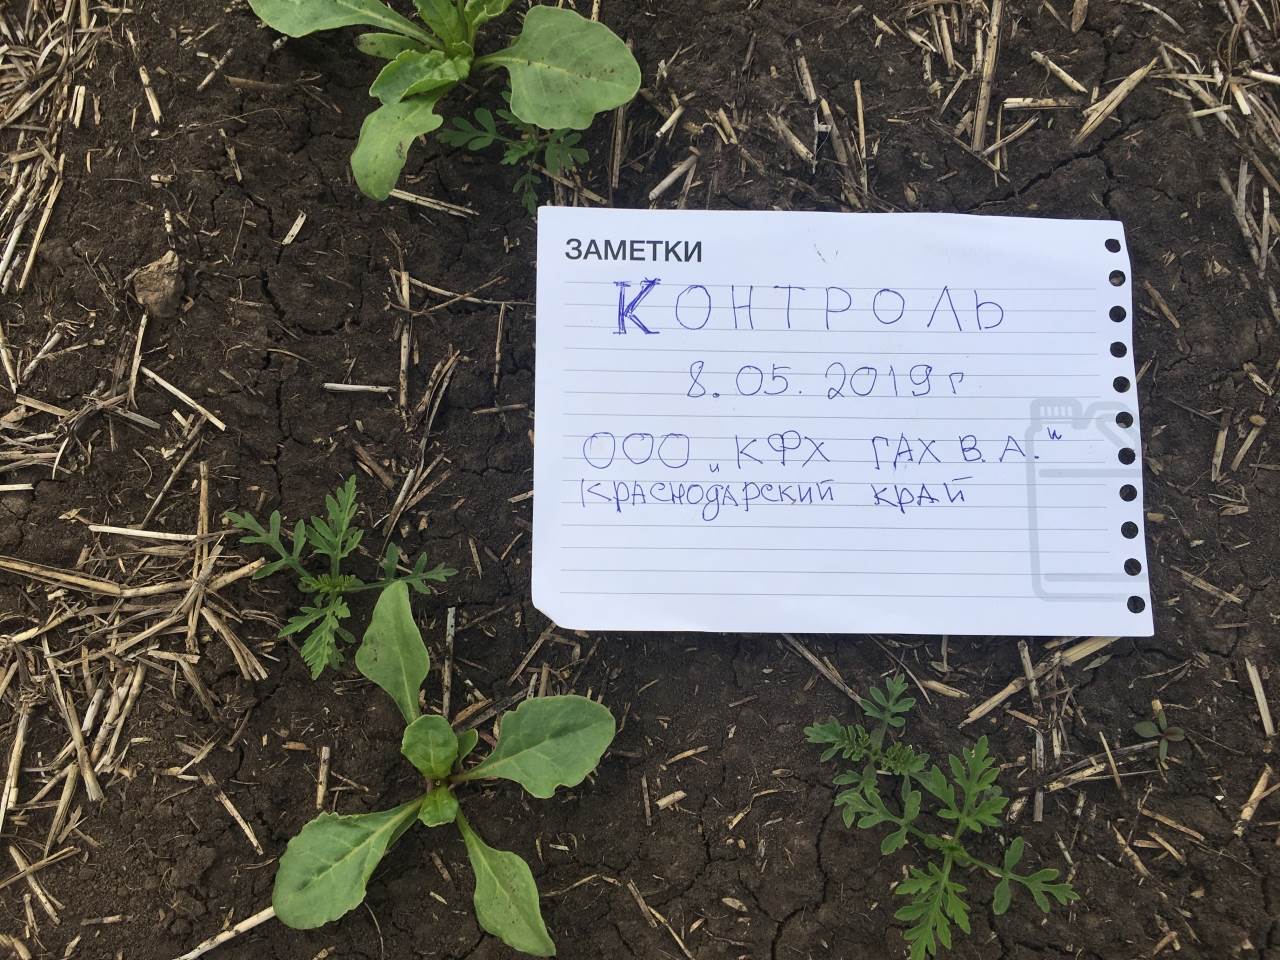 ЗАМЕТКИ
КОНТРОЛЬ
8.05.2019 г
ООО „КФХ ГАХ В.А."
КРАСНОДАРСКИЙ КРАЙ